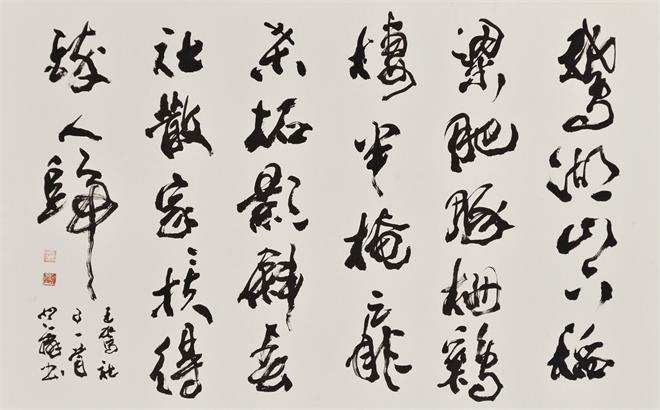 鵝湖山下稻
粱肥豚栅鷄
棲半掩扉
桑柘影斜春
社散家々扶得
醉人歸
王駕社
日一首
书